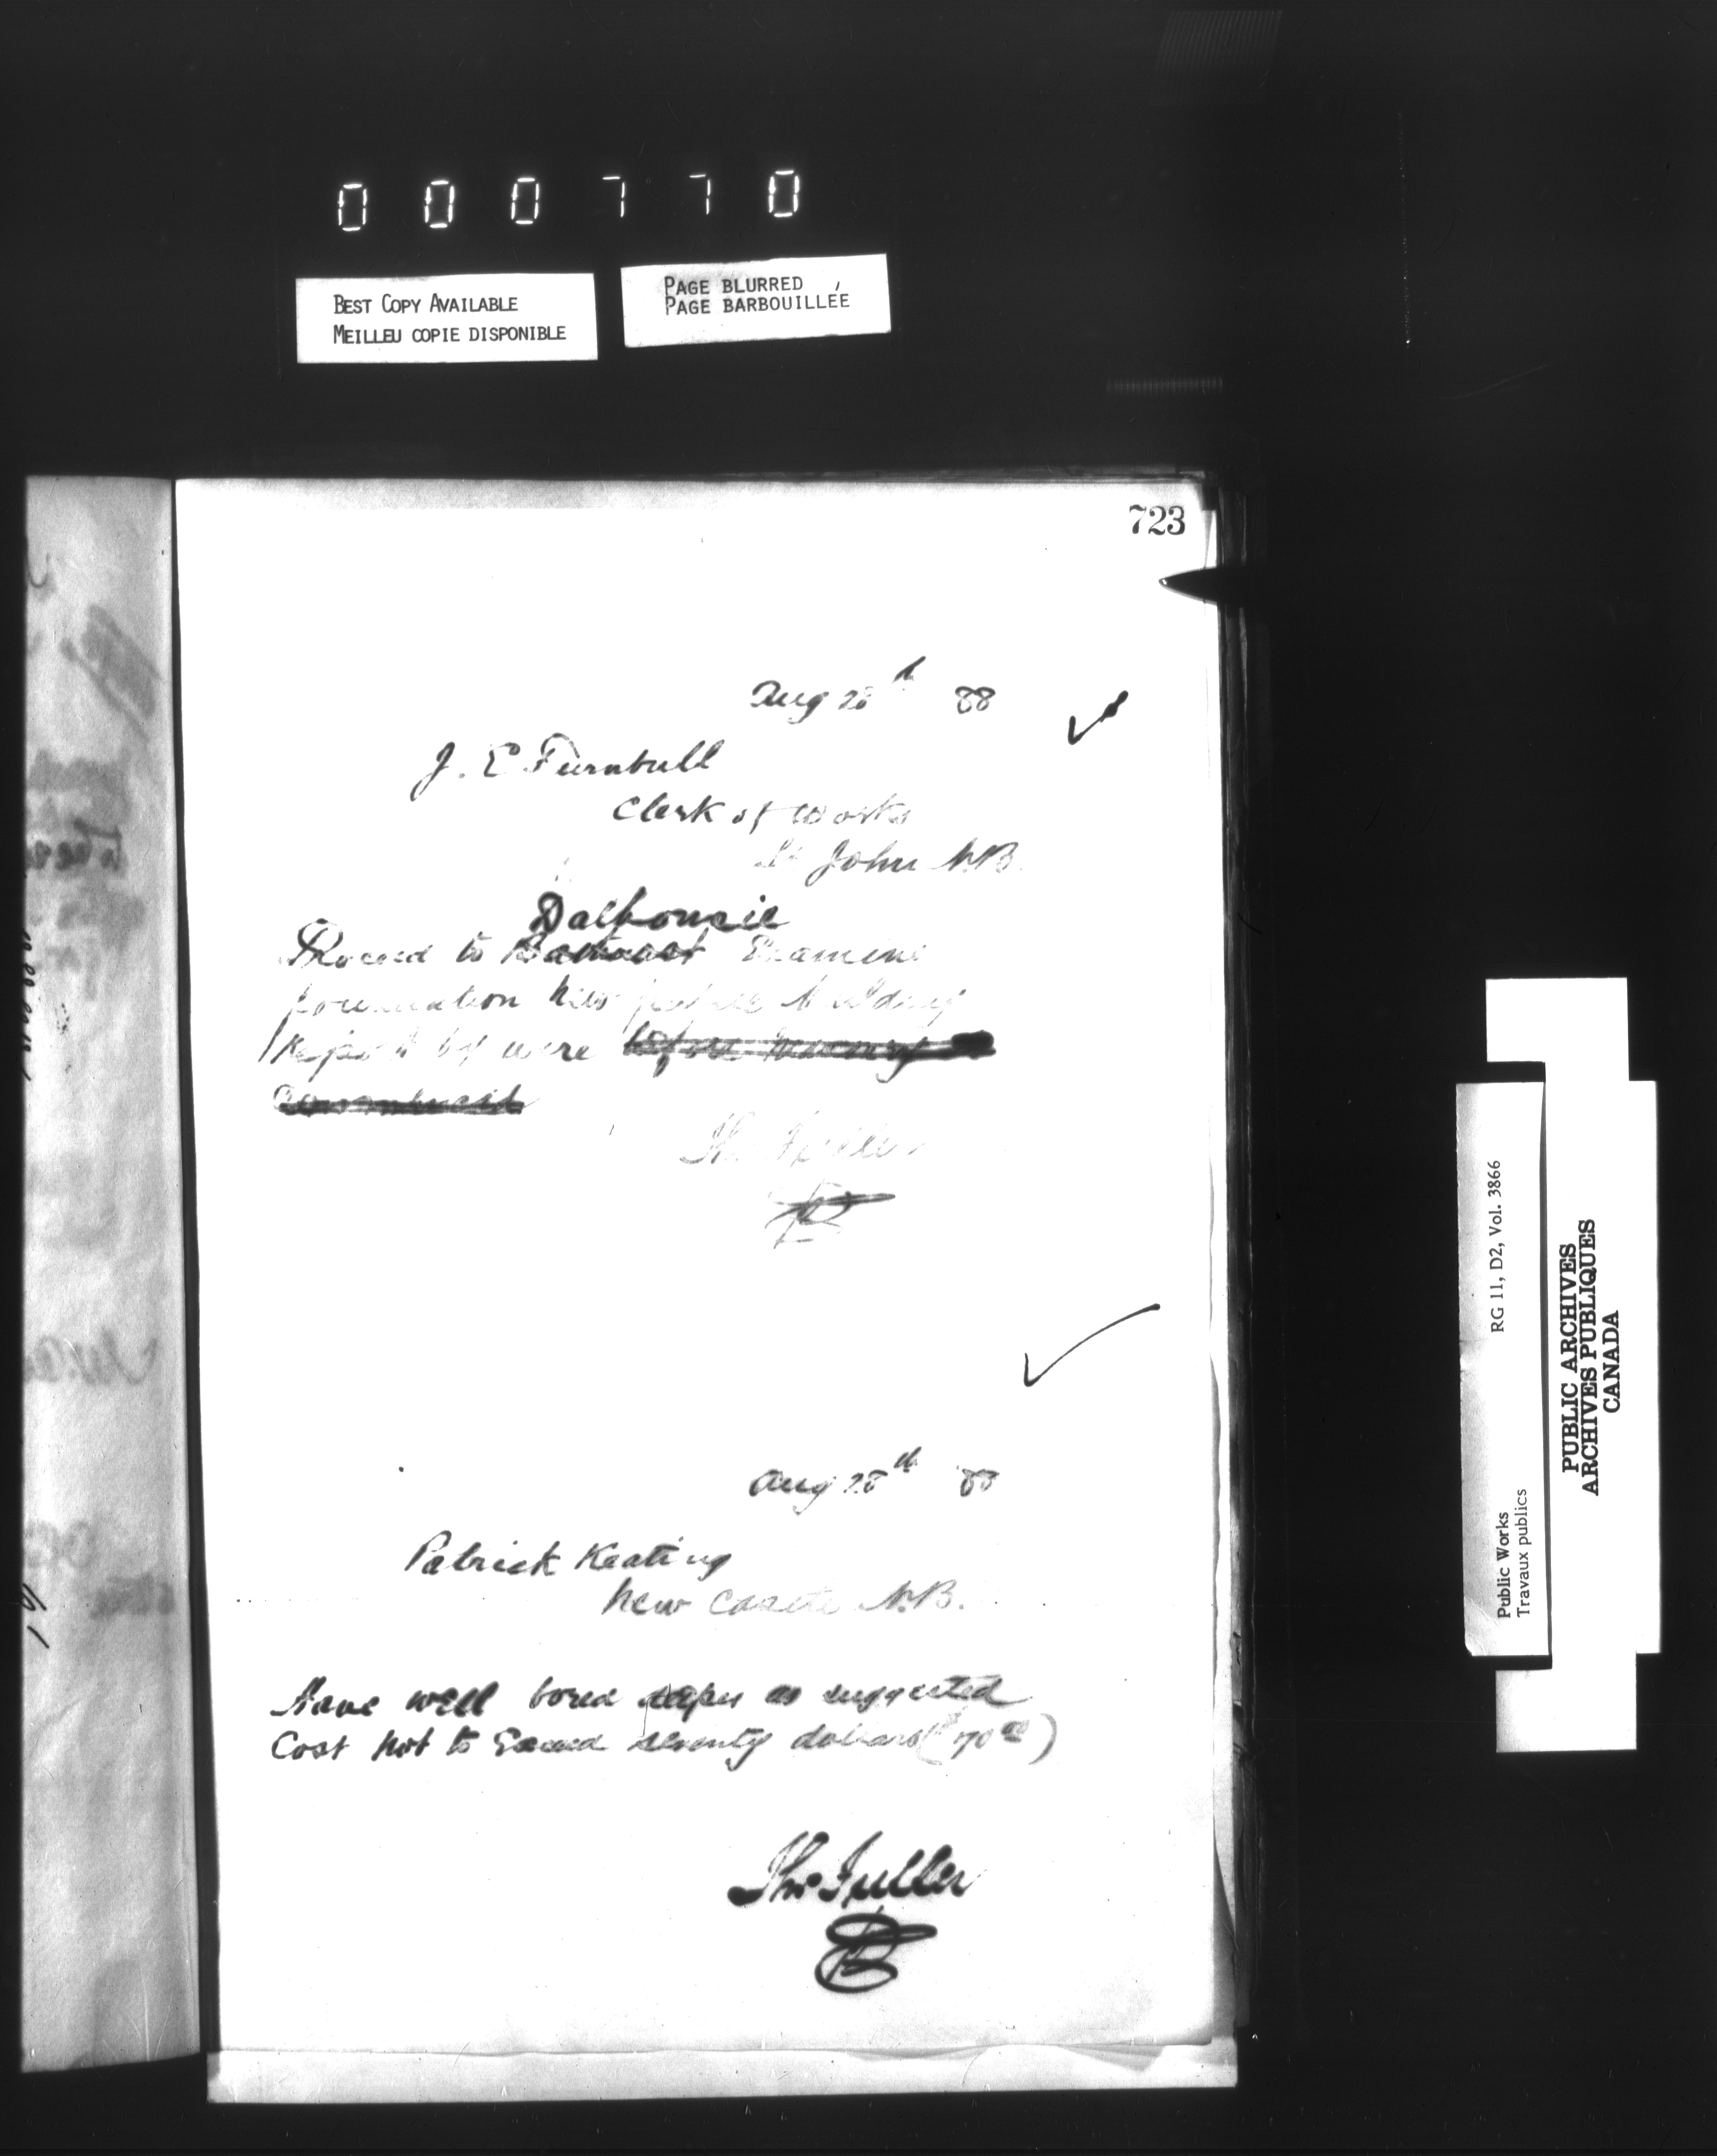 000770
BEST COPY AVAILABLE
MEILLEU COPIE DISPONIBLE
PAGE BLURRED
PAGE BARBOUILLÉE
723
Aug 28th 88
J. E Turnbull
Clerk of Works
St John N.B.
Dalhousie
Proceed to Examine
foundation new public building
Report by wire before
Th. Fuller
Aug 28th 88
Patrick Keating
New Castle N.B.
Have well bored deeper as suggested
Cost not to Exceed seventy dollars ($70 00)
Thos Fuller
Public Works
Travaux publics
RG 11, D2, Vol. 3866
PUBLIC ARCHIVES
ARCHIVES PUBLIQUES
CANADA